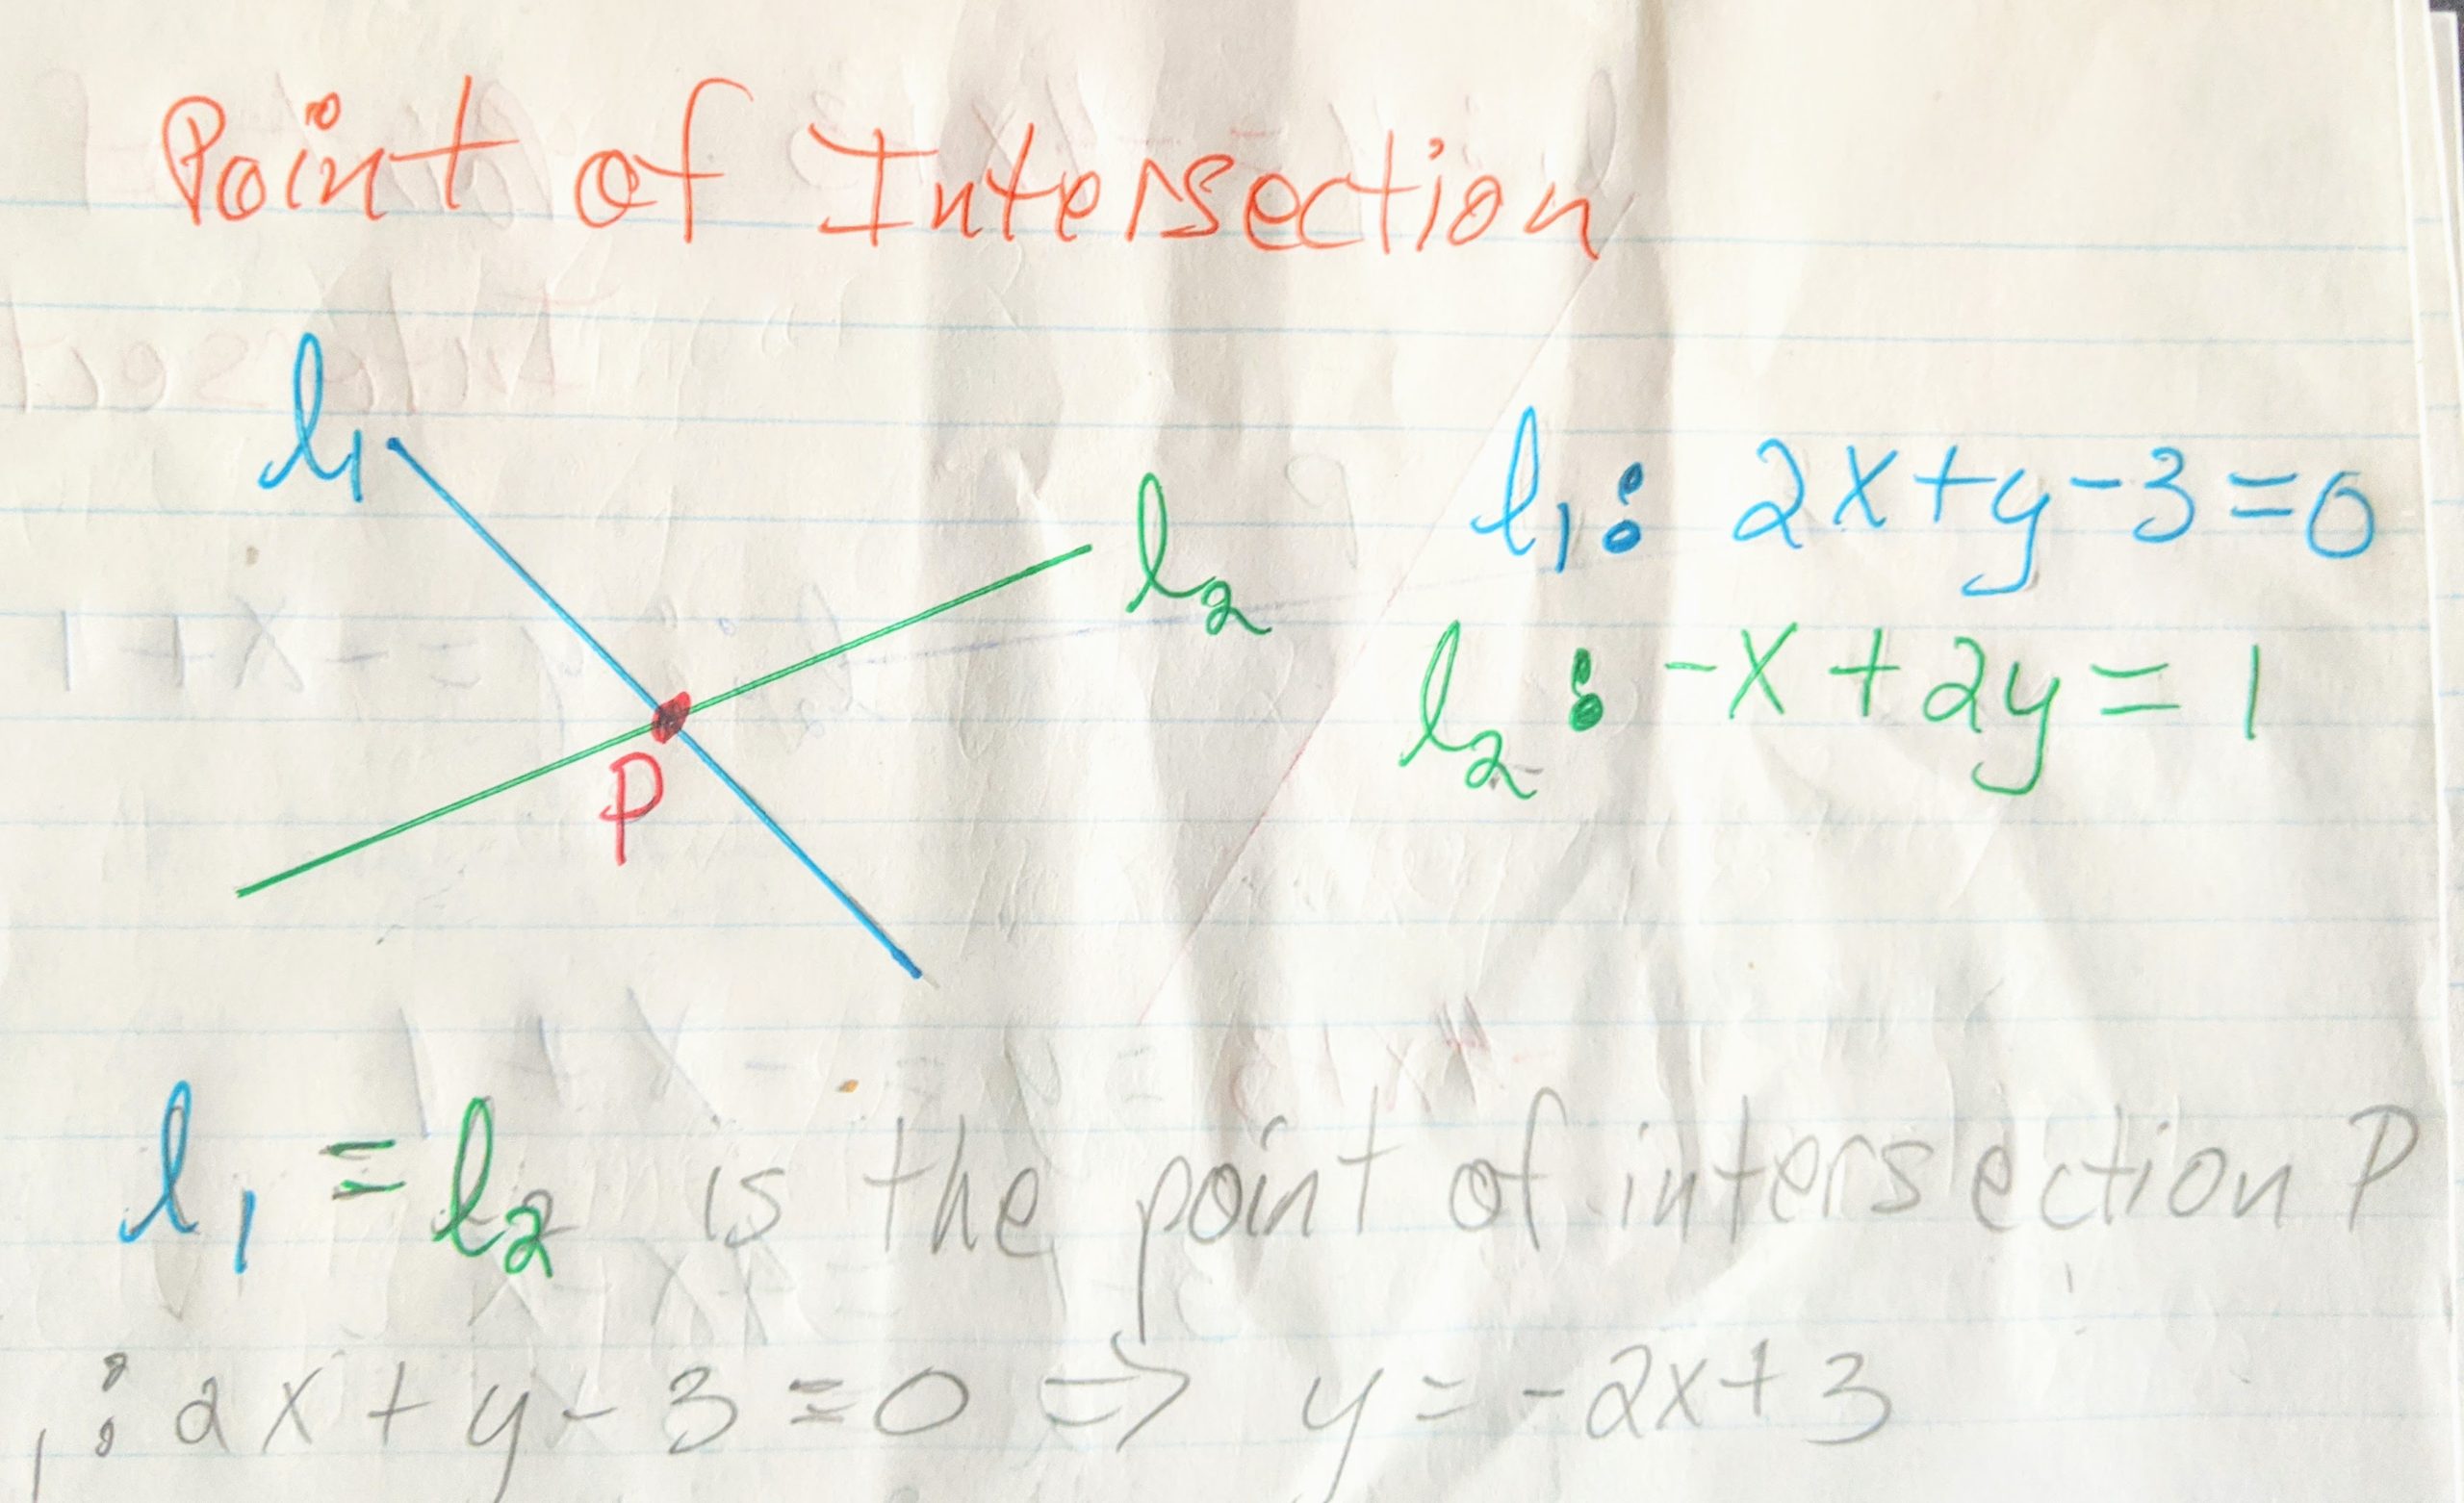 Point of Intersection
l₁
l₂
P
l₁: 2x+y-3=0
l₂: -x+2y=1
l₁ = l₂ is the point of intersection P
₁: 2x+y-3=0 ⇒ y=-2x+3